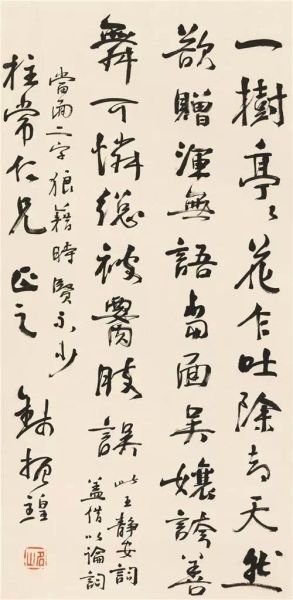 一樹亭〻花乍吐除却天然
欲贈渾無語當面吳孃誇善
舞可憐總被腰肢誤
此王靜安詞
蓋借以論詞
當面二字狼藉時賢不少
柱常仁兄正之 錢振鍠
名山